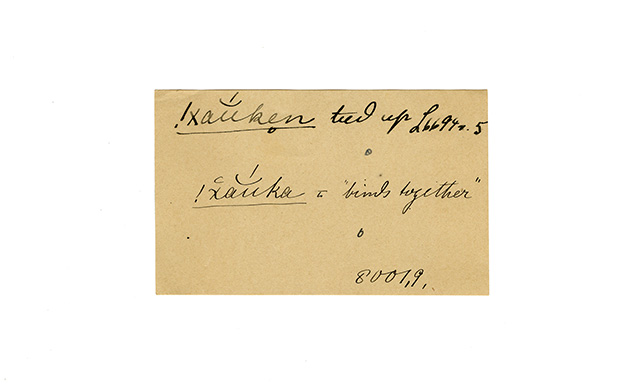 !χáŭken tied up L6694. 5
!χáŭka = "binds together"
8001,9,